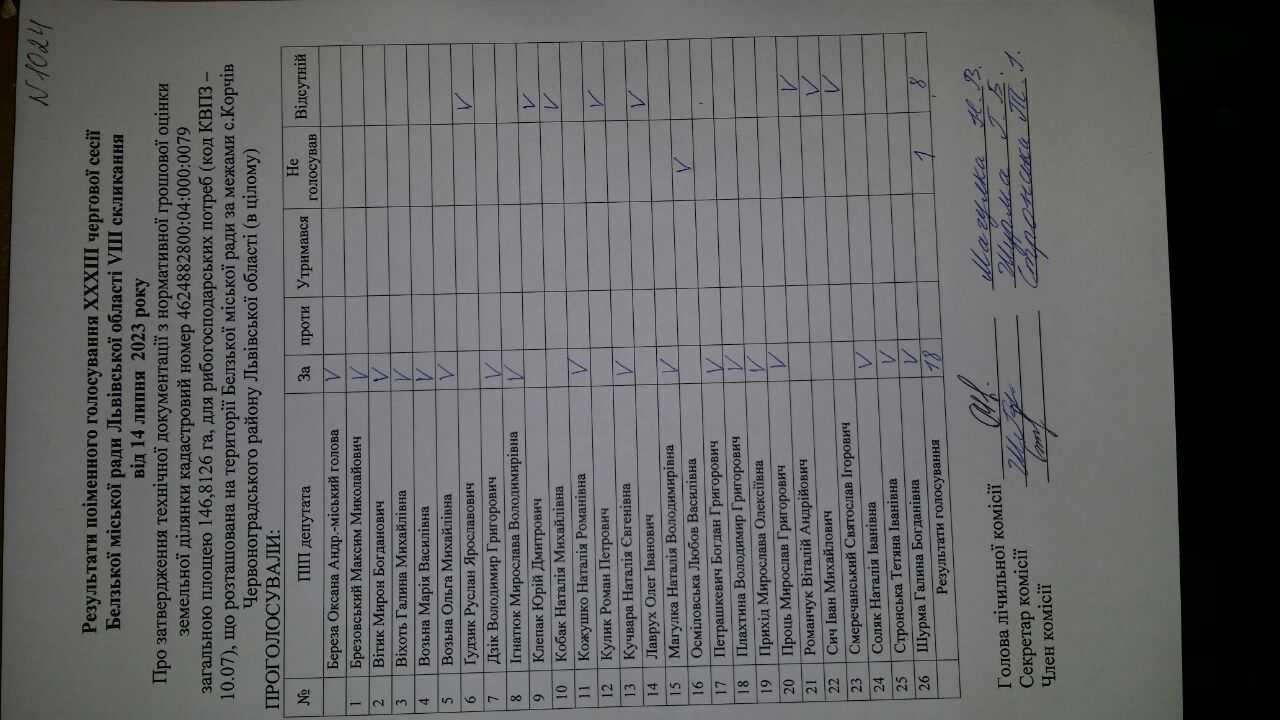 N 1024
Результати поіменного голосування XXXIII чергової сесії
Белзької міської ради Львівської області VIII скликання
від 14 липня 2023 року
Про затвердження технічної документації з нормативної грошової оцінки
земельної ділянки кадастровий номер 4624882800:04:000:0079
загальною площею 146,8126 га, для рибогосподарських потреб (код КВПЗ –
10.07), що розташована на території Белзької міської ради за межами с.Корчів
Червоноградського району Львівської області (в цілому)
ПРОГОЛОСУВАЛИ:
№ ПІП депутата За проти Утримався Не голосував Відсутній
Береза Оксана Андр.-міський голова V
1 Брезовський Максим Миколайович V
2 Вітик Мирон Богданович V
3 Віхоть Галина Михайлівна V
4 Возьна Марія Василівна V
5 Возьна Ольга Михайлівна V
6 Гудзик Руслан Ярославович V
7 Дзік Володимир Григорович V
8 Ігнатюк Мирослава Володимирівна V
9 Клепак Юрій Дмитрович V
10 Кобак Наталія Михайлівна V
11 Кожушко Наталія Романівна V
12 Кулик Роман Петрович V
13 Кучвара Наталія Євгенівна V
14 Лаврух Олег Іванович V
15 Магулка Наталія Володимирівна V
16 Осміловська Любов Василівна V
17 Петрашкевич Богдан Григорович V
18 Плахтина Володимир Григорович V
19 Прихід Мирослава Олексіївна V
20 Проць Мирослав Григорович V
21 Романчук Віталій Андрійович V
22 Сич Іван Михайлович V
23 Смеречанський Святослав Ігорович V
24 Соляк Наталія Іванівна V
25 Стронська Тетяна Іванівна V
26 Щурма Галина Богданівна V
Результати голосування 18 1 8
Голова лічильної комісії Магулка Н.В.
Секретар комісії Щурма Г.Б.
Член комісії Стронська Т.І.